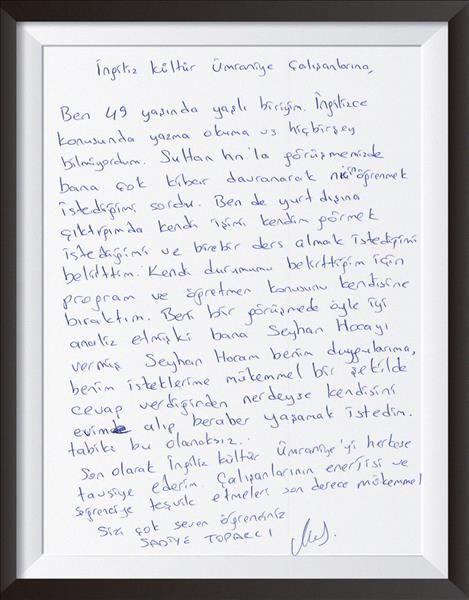 İngiliz Kültür Ümraniye Çalışanlarına,
Ben 49 yaşında yaşlı biriyim. İngilizce
konusunda yazma okuma vs. hiçbirşey
bilmiyordum. Sultan hn'la görüşmemizde
bana çok kibar davranarak niçin öğrenmek
istediğimi sordu. Ben de yurt dışına
çıktığımda kendi işimi kendim görmek
istediğimi ve birebir ders almak istediğimi
belirttim. Kendi durumumu belirttiğim için
program ve öğretmen konusunu kendisine
bıraktım. Beni bir görüşmede öyle iyi
analiz etmişki bana Seyhan Hocayı
vermiş Seyhan Hocam benim duygularıma,
benim isteklerime mükemmel bir şekilde
cevap verdiğinden nerdeyse kendisini
evimde alıp beraber yaşamak istedim.
tabiki bu olanaksız.
Son olarak İngiliz Kültür Ümraniye'yi herkese
tavsiye ederim. Çalışanlarının enerjisi ve
öğrenciye teşvik etmeleri son derece mükemmel
Sizi çok seven öğrenciniz
SADİYE TOPALCI